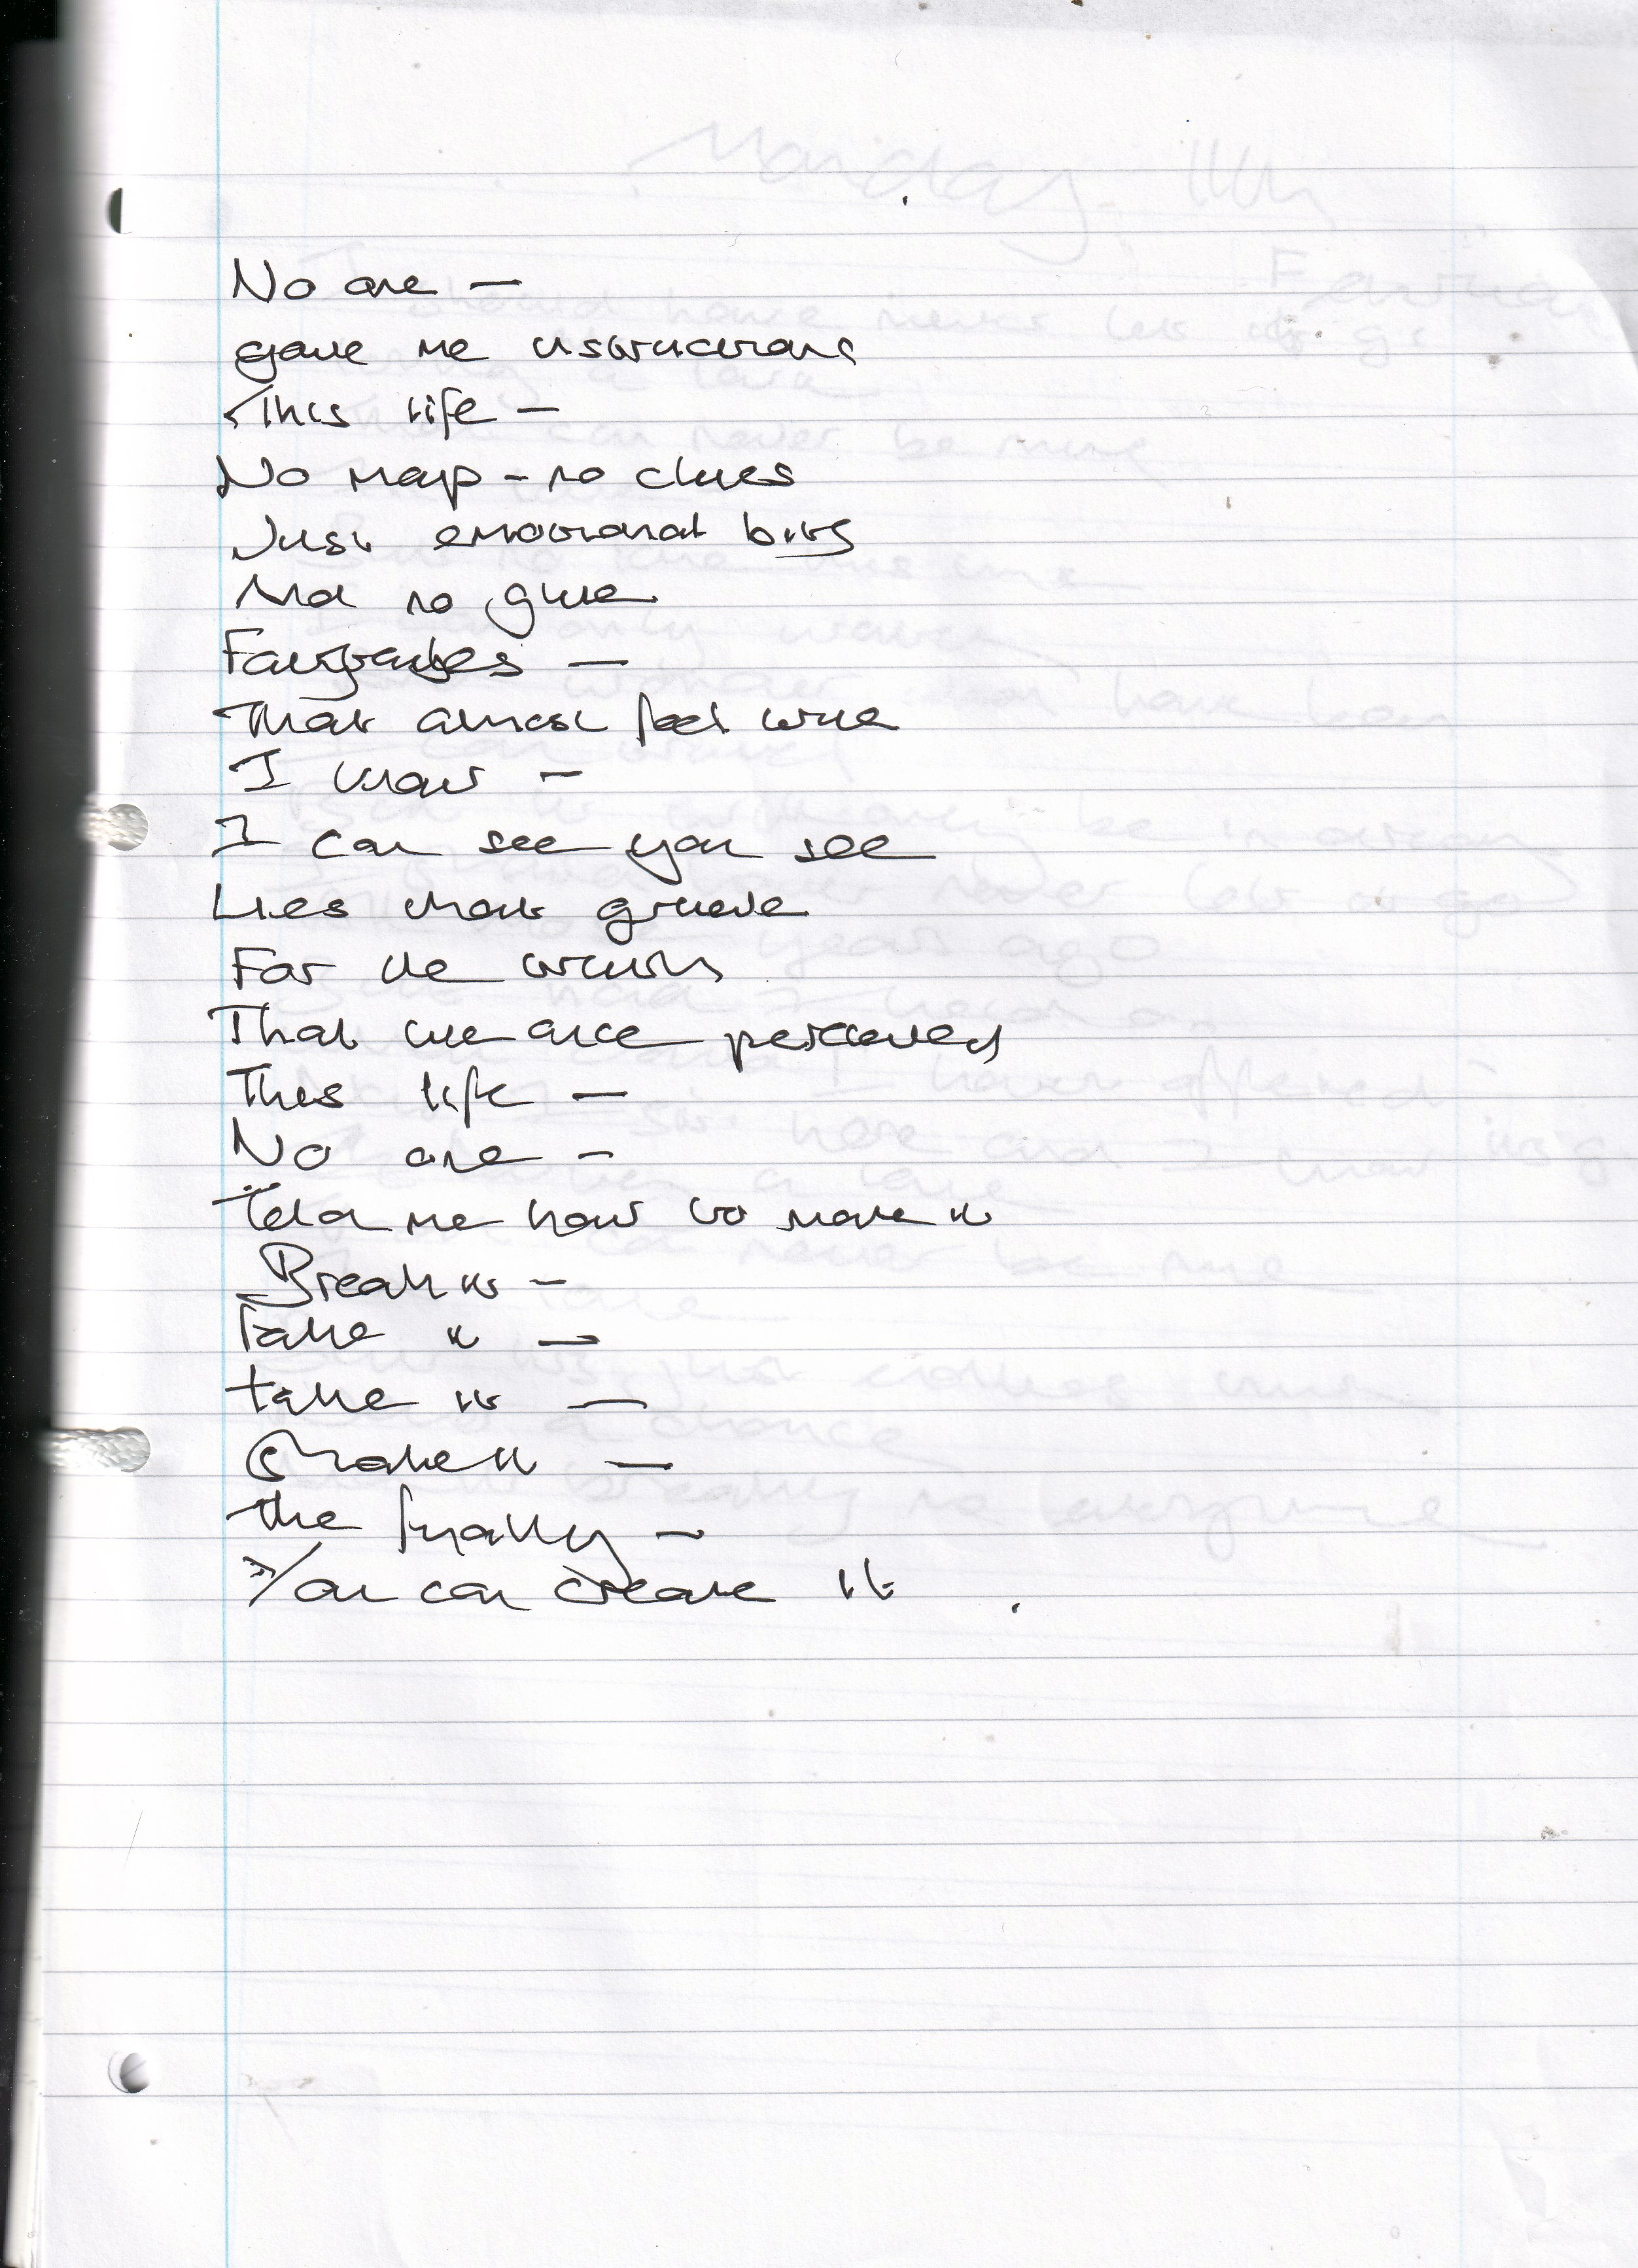 No one –
gave me instructions
This life –
No map – no clues
Just emotional bits
And no glue
Fairytales –
That almost feel true
I know –
I can see you see
Lies that grieve
For the truths
That we are perceived
This life –
No one –
Told me how to make it
Break it –
Take it –
take it –
Shake it –
The finally –
You can create it .